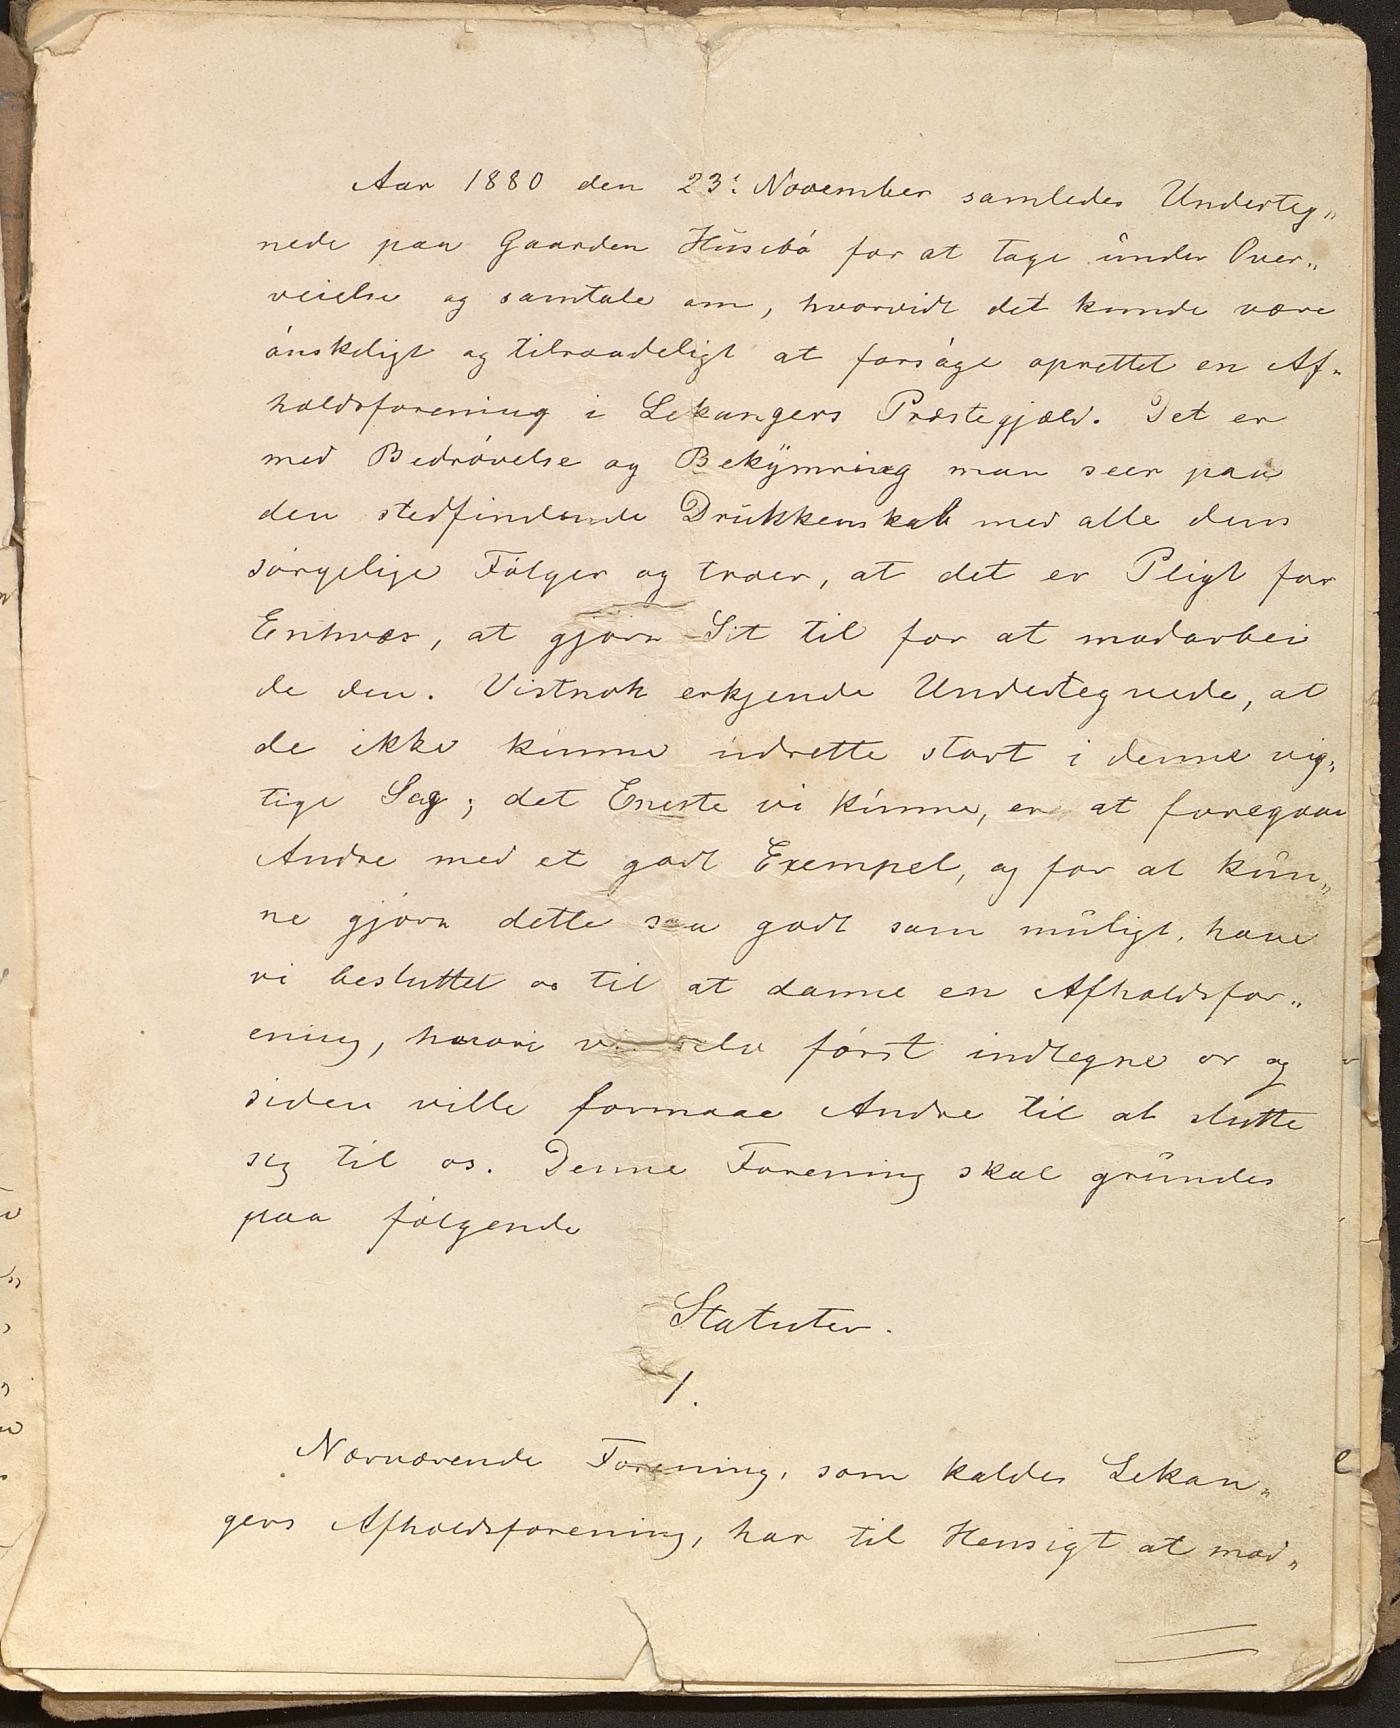 Aar 1880 den 23: November samledes Underteg„
nede paa Gaarden Húsebó for at tage únder Over„
veielse og samtale om, hvorvidt det kunde være
ónskeligt og tilraadeligt at forsóge oprettet en Af„
holdsforening i Lekangers Præstegjæld. Det er
med Bedróvelse og Bekÿmring man seer paa
den stedfindende Drúkkenskab med alle dens
sórgelige Fólger og troer, at det er Pligt for
Enhver, at gjóre Sit til for at modarbei
de den. Vistnok erkjende Undertegnede, at
de ikke kúnne udrette stort i denne vig„
tige Sag; det Eneste vi kúnne, er at foregaae
Andre med et godt Exempel, og for at kún„
ne gjóre dette saa godt som múligt, have
vi besluttet os til at danne en Afholdsfor„
ening, hvori vi selv fórst indtegne os og
siden ville formaae Andre til at slutte
sig til os. Denne Forening skal grúndes
paa fólgende
Statuter.
1.
Nærværende Forening, som kaldes Lekan„
gers Afholdsforening, har til Hensigt at mod„